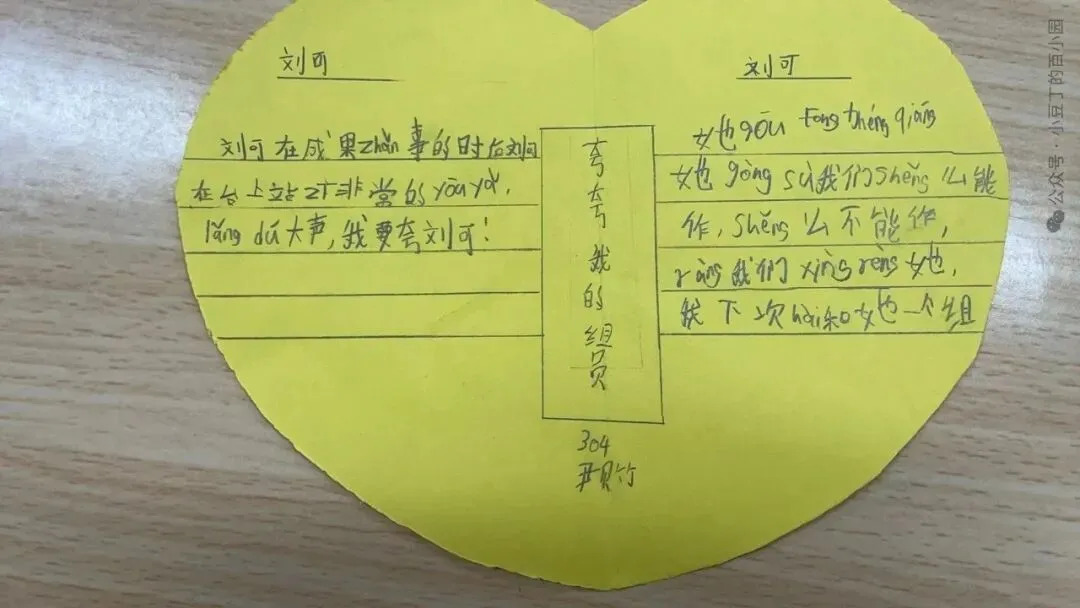 刘可
刘可在成果zhǎn事的时后刘可
在台上站zi非常的yōuyǎ,
lǎng dú大声,我要夸刘可!
夸夸我的组员
刘可
她gōu tong théng qiáng
她gòng sù我们shěng么能
作,shěng么不能作,
ràng我们xìng rèng她,
我下次hài和她一个组
304
贝竹
公众号·小豆丁的亩小园